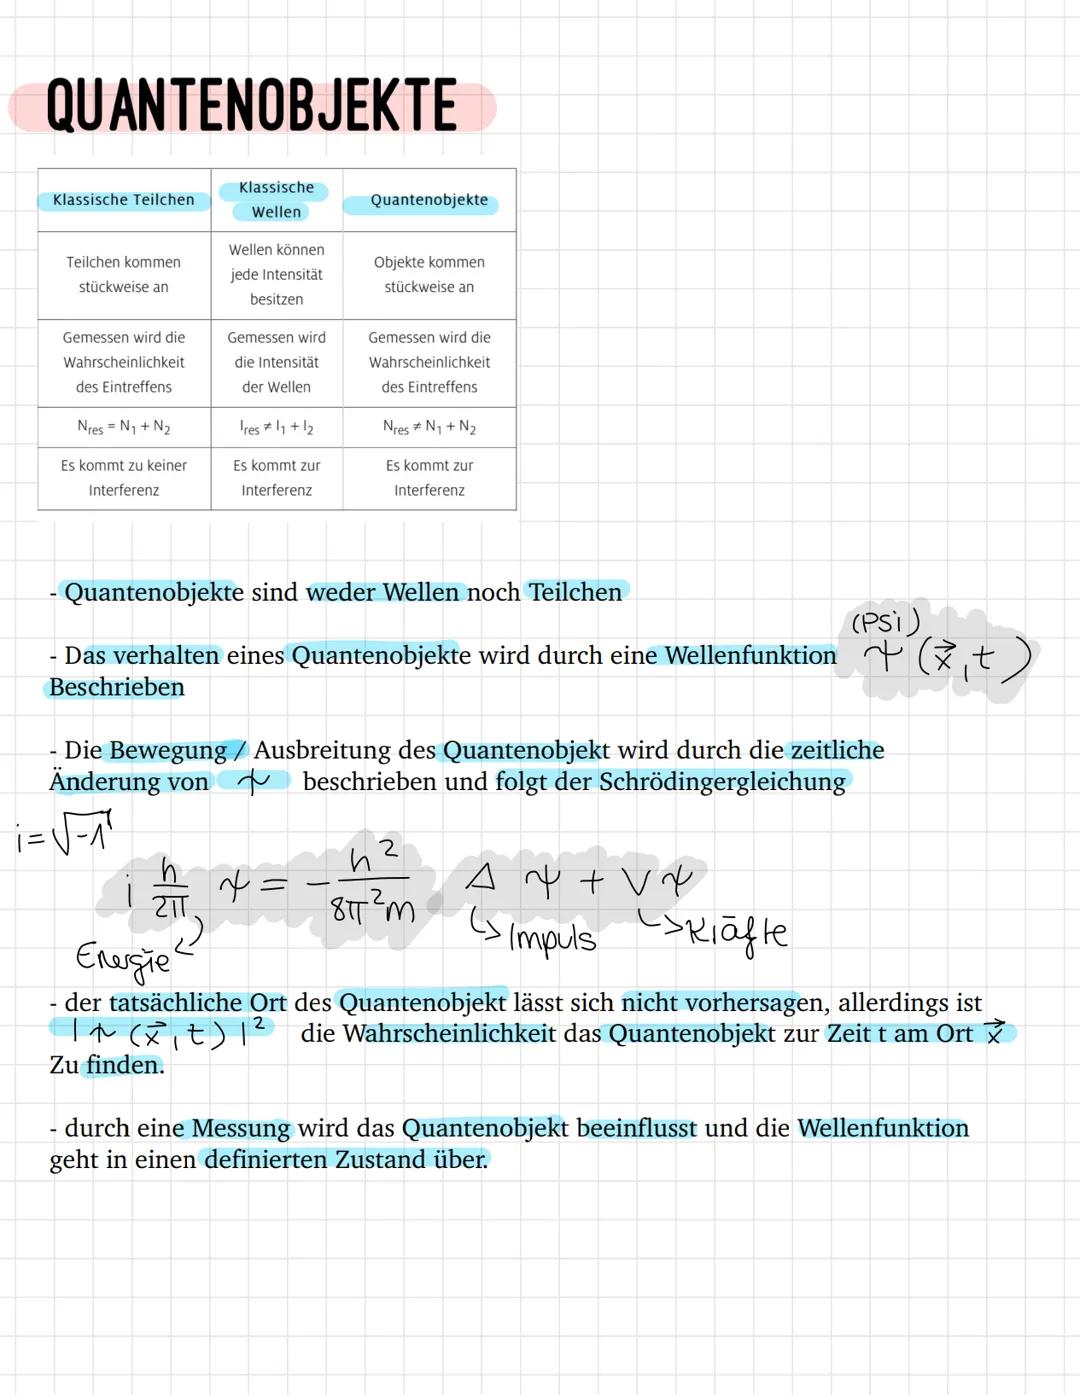 QUANTENOBJEKTE
Klassische Teilchen | Klassische Wellen | Quantenobjekte
Teilchen kommen stückweise an | Wellen können jede Intensität besitzen | Objekte kommen stückweise an
Gemessen wird die Wahrscheinlichkeit des Eintreffens | Gemessen wird die Intensität der Wellen | Gemessen wird die Wahrscheinlichkeit des Eintreffens
N_res = N₁ + N₂ | I_res ≠ I₁ + I₂ | N_res ≠ N₁ + N₂
Es kommt zu keiner Interferenz | Es kommt zur Interferenz | Es kommt zur Interferenz
- Quantenobjekte sind weder Wellen noch Teilchen
(Psi)
- Das verhalten eines Quantenobjekte wird durch eine Wellenfunktion ψ(x⃗,t)
Beschrieben
- Die Bewegung / Ausbreitung des Quantenobjekt wird durch die zeitliche
Änderung von ψ beschrieben und folgt der Schrödingergleichung
i = √-1
i h/2π ψ = - h²/8π²m Δ ψ + V ψ
Energie Impuls Kräfte
- der tatsächliche Ort des Quantenobjekt lässt sich nicht vorhersagen, allerdings ist
|ψ(x⃗,t)|² die Wahrscheinlichkeit das Quantenobjekt zur Zeit t am Ort x⃗
Zu finden.
- durch eine Messung wird das Quantenobjekt beeinflusst und die Wellenfunktion
geht in einen definierten Zustand über.